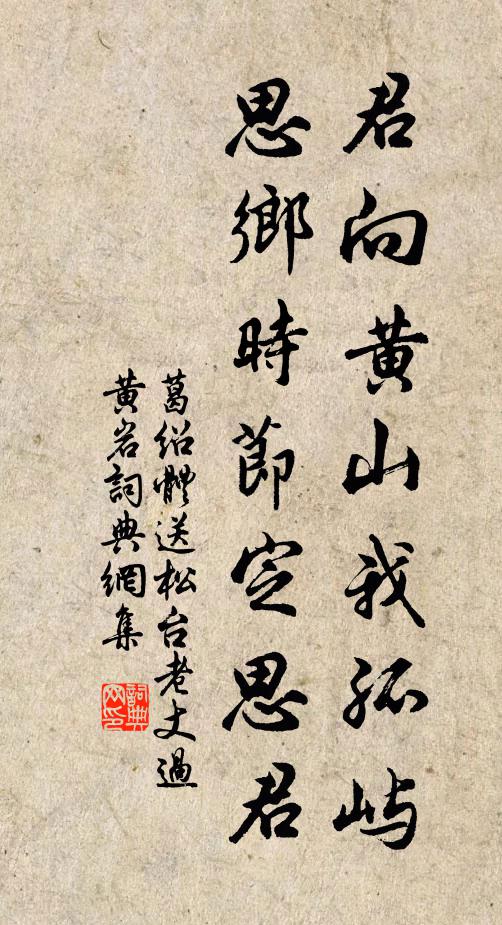 君向黄山我孤屿
思鄉時節定思君
葛绍體送松台老丈過
黄岩詞典網集
詞典网印